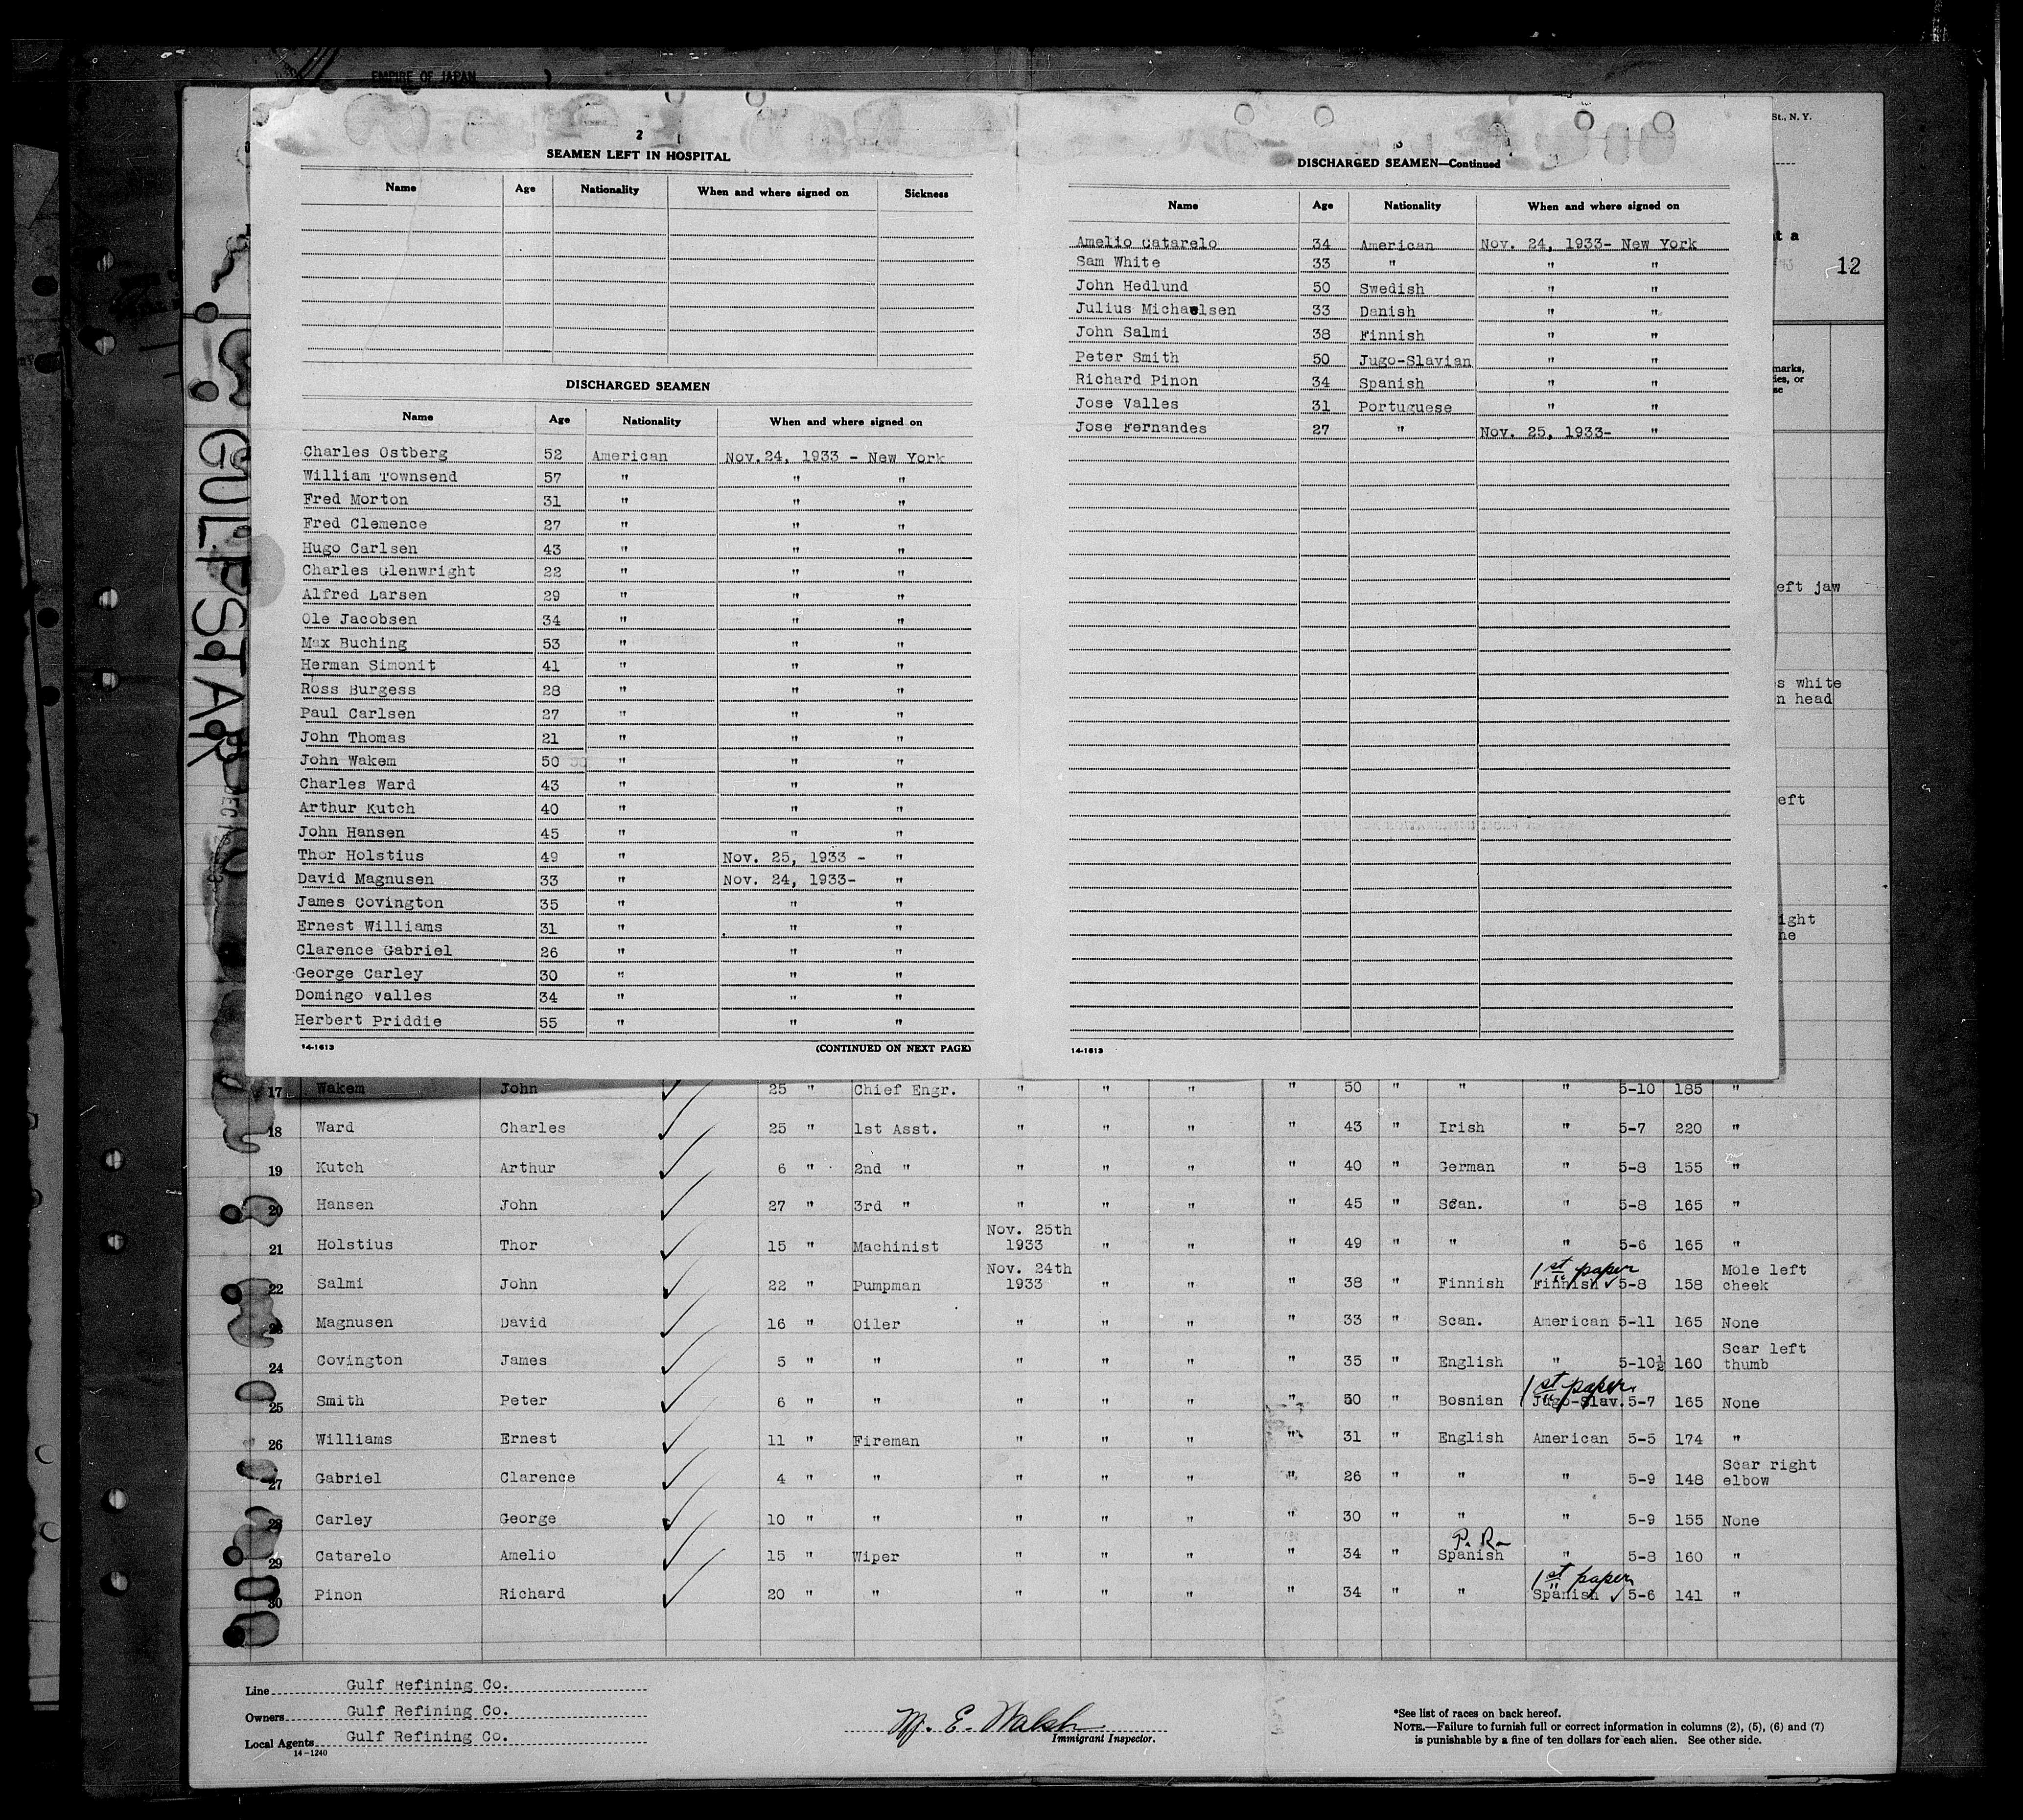 EMPIRE OF JAPAN
St., N. Y.
2
SEAMEN LEFT IN HOSPITAL
Name Age Nationality When and where signed on Sickness
DISCHARGED SEAMEN
Name Age Nationality When and where signed on
Charles Ostberg 52 American Nov.24, 1933 - New York
William Townsend 57 " " "
Fred Morton 31 " " "
Fred Clemence 27 " " "
Hugo Carlsen 43 " " "
Charles Glenwright 22 " " "
Alfred Larsen 29 " " "
Ole Jacobsen 34 " " "
Max Buching 53 " " "
Herman Simonit 41 " " "
Ross Burgess 28 " " "
Paul Carlsen 27 " " "
John Thomas 21 " " "
John Wakem 50 " " "
Charles Ward 43 " " "
Arthur Kutch 40 " " "
John Hansen 45 " " "
Thor Holstius 49 " Nov. 25, 1933 - "
David Magnusen 33 " Nov. 24, 1933- "
James Covington 35 " " "
Ernest Williams 31 " " "
Clarence Gabriel 26 " " "
George Carley 30 " " "
Domingo Valles 34 " " "
Herbert Priddie 55 " " "
14-1613 (CONTINUED ON NEXT PAGE)
DISCHARGED SEAMEN—Continued
Name Age Nationality When and where signed on
Amelio Catarelo 34 American Nov. 24, 1933- New York
Sam White 33 " " "
John Hedlund 50 Swedish " "
Julius Michaelsen 33 Danish " "
John Salmi 38 Finnish " "
Peter Smith 50 Jugo-Slavian " "
Richard Pinon 34 Spanish " "
Jose Valles 31 Portuguese " "
Jose Fernandes 27 " Nov. 25, 1933- "
14-1613
t a
12
marks,
ies, or
se
eft jaw
s white
n head
eft
ight
ne
GULFSTAR
17 Wakem John 25 " Chief Engr. " " " " 50 " " " 5-10 185 "
18 Ward Charles 25 " 1st Asst. " " " " 43 " Irish " 5-7 220 "
19 Kutch Arthur 6 " 2nd " " " " " 40 " German " 5-8 155 "
20 Hansen John 27 " 3rd " " " " " 45 " Scan. " 5-8 165 "
21 Holstius Thor 15 " Machinist Nov. 25th 1933 " " " 49 " " " 5-6 165 "
1st paper
22 Salmi John 22 " Pumpman Nov. 24th 1933 " " " 38 " Finnish Finnish 5-8 158 Mole left cheek
23 Magnusen David 16 " Oiler " " " " 33 " Scan. American 5-11 165 None
24 Covington James 5 " " " " " " 35 " English " 5-10½ 160 Scar left thumb
1st paper
25 Smith Peter 6 " " " " " " 50 " Bosnian Jugo-Slav. 5-7 165 None
26 Williams Ernest 11 " Fireman " " " " 31 " English American 5-5 174 "
27 Gabriel Clarence 4 " " " " " " 26 " " " 5-9 148 Scar right elbow
28 Carley George 10 " " " " " " 30 " " " 5-9 155 None
P. R.
29 Catarelo Amelio 15 " Wiper " " " " 34 " Spanish " 5-8 160 "
1st paper
30 Pinon Richard 20 " " " " " " 34 " " Spanish 5-6 141 "
Line Gulf Refining Co.
Owners Gulf Refining Co.
Local Agents Gulf Refining Co.
14-1240
W. E. Walsh
Immigrant Inspector.
*See list of races on back hereof.
NOTE.—Failure to furnish full or correct information in columns (2), (5), (6) and (7)
is punishable by a fine of ten dollars for each alien. See other side.